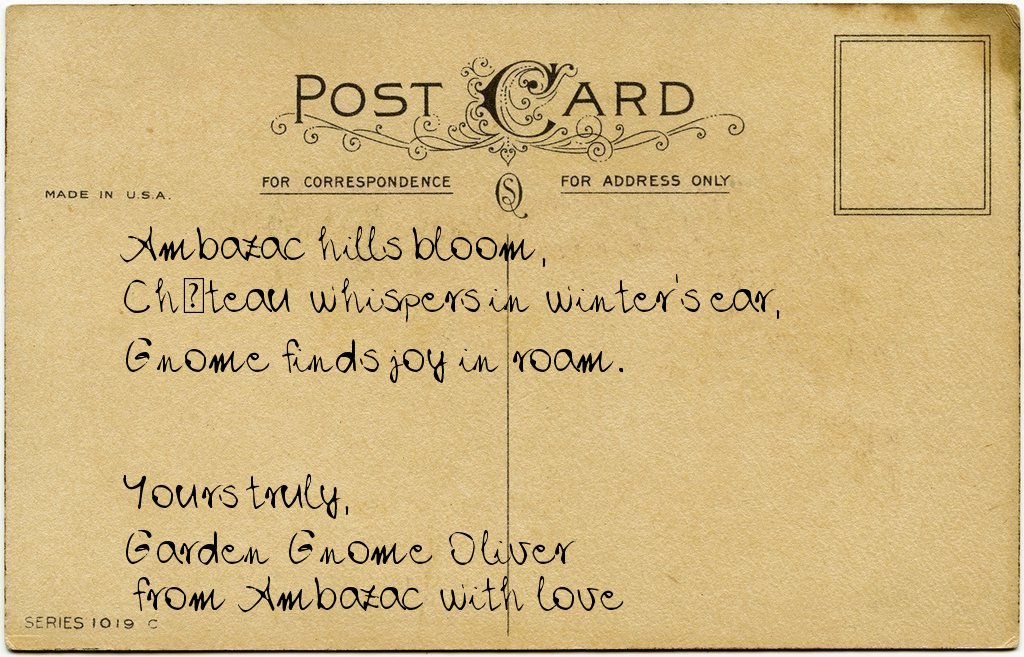 POST CARD
FOR CORRESPONDENCE
FOR ADDRESS ONLY
MADE IN U.S.A.
Ambazac hills bloom,
Ch⍰teau whispers in winter's ear,
Gnome finds joy in roam.
Yours truly,
Garden Gnome Oliver
from Ambazac with love
SERIES 1019 C